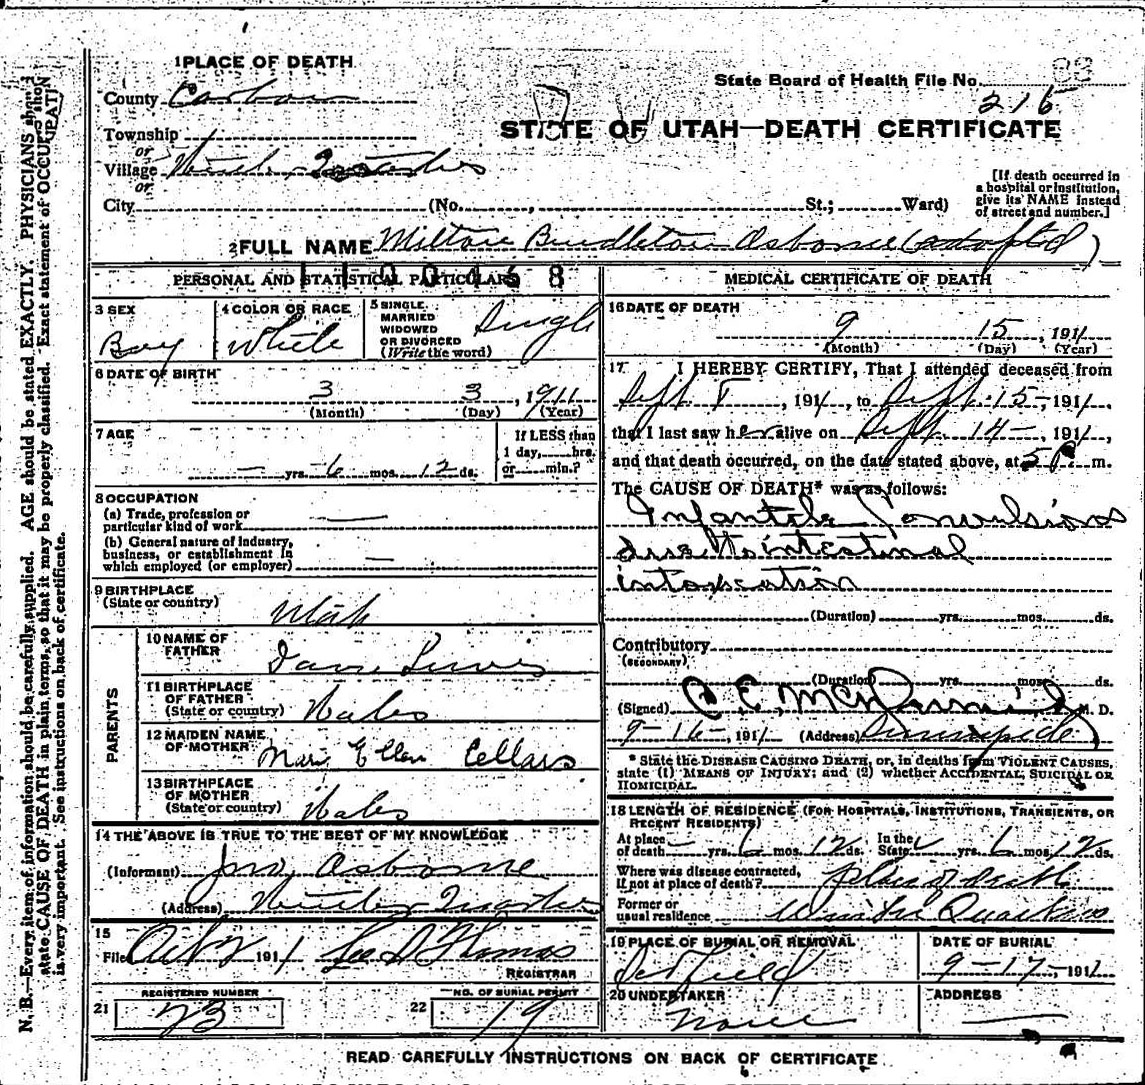 1 PLACE OF DEATH
State Board of Health File No. 88
County Carbon
215
Township
STATE OF UTAH—DEATH CERTIFICATE
or
Village Winter Quarters
or
[If death occurred in a hospital or institution, give its NAME instead of street and number.]
City (No. , St.; Ward)
2 FULL NAME Milton Osborne (adopted)
1100468
PERSONAL AND STATISTICAL PARTICULARS
3 SEX
Boy
4 COLOR OR RACE
White
5 SINGLE
MARRIED
WIDOWED
OR DIVORCED
(Write the word)
Single
6 DATE OF BIRTH
3 3, 1911
(Month) (Day) (Year)
7 AGE
— yrs. 6 mos. 12 ds.
If LESS than
1 day, hrs.
or min.?
8 OCCUPATION
(a) Trade, profession or
particular kind of work —
(b) General nature of industry,
business, or establishment in
which employed (or employer) —
9 BIRTHPLACE
(State or country)
Utah
PARENTS
10 NAME OF
FATHER
Lewis
11 BIRTHPLACE
OF FATHER
(State or country)
Wales
12 MAIDEN NAME
OF MOTHER
Mary Ellen Cellars
13 BIRTHPLACE
OF MOTHER
(State or country)
Wales
14 THE ABOVE IS TRUE TO THE BEST OF MY KNOWLEDGE
(Informant) Jno Osborne
(Address) Winter Quarters
15
Filed Oct 2 1911 Thomas
REGISTRAR
21 REGISTERED NUMBER
23
22 NO. OF BURIAL PERMIT
19
MEDICAL CERTIFICATE OF DEATH
16 DATE OF DEATH
9 15, 1911
(Month) (Day) (Year)
17 I HEREBY CERTIFY, That I attended deceased from
Sept , 1911, to Sept. 15-, 1911,
that I last saw her alive on Sept. 14-, 1911,
and that death occurred, on the date stated above, at 5 P. m.
The CAUSE OF DEATH* was as follows:
Infantile Convulsions
due to intestinal
intoxication
(Duration) yrs. mos. ds.
Contributory
(SECONDARY)
(Duration) yrs. mos. ds.
(Signed) C. E. M. D.
9-16-, 1911 (Address) Sunnyside
* State the DISEASE CAUSING DEATH, or, in deaths from VIOLENT CAUSES,
state (1) MEANS OF INJURY; and (2) whether ACCIDENTAL, SUICIDAL OR
HOMICIDAL.
18 LENGTH OF RESIDENCE (FOR HOSPITALS, INSTITUTIONS, TRANSIENTS, OR
RECENT RESIDENTS)
At place
of death - yrs. 6 mos. 12 ds. In the
State yrs. 6 mos. 12 ds.
Where was disease contracted,
if not at place of death? place of death
Former or
usual residence Winter Quarters
19 PLACE OF BURIAL OR REMOVAL
DATE OF BURIAL
9-17-, 1911
20 UNDERTAKER
none
ADDRESS
—
READ CAREFULLY INSTRUCTIONS ON BACK OF CERTIFICATE
N. B.—Every item of information should be carefully supplied. AGE should be stated EXACTLY. PHYSICIANS should
state CAUSE OF DEATH in plain terms, so that it may be properly classified. Exact statement of OCCUPATION
is very important. See instructions on back of certificate.